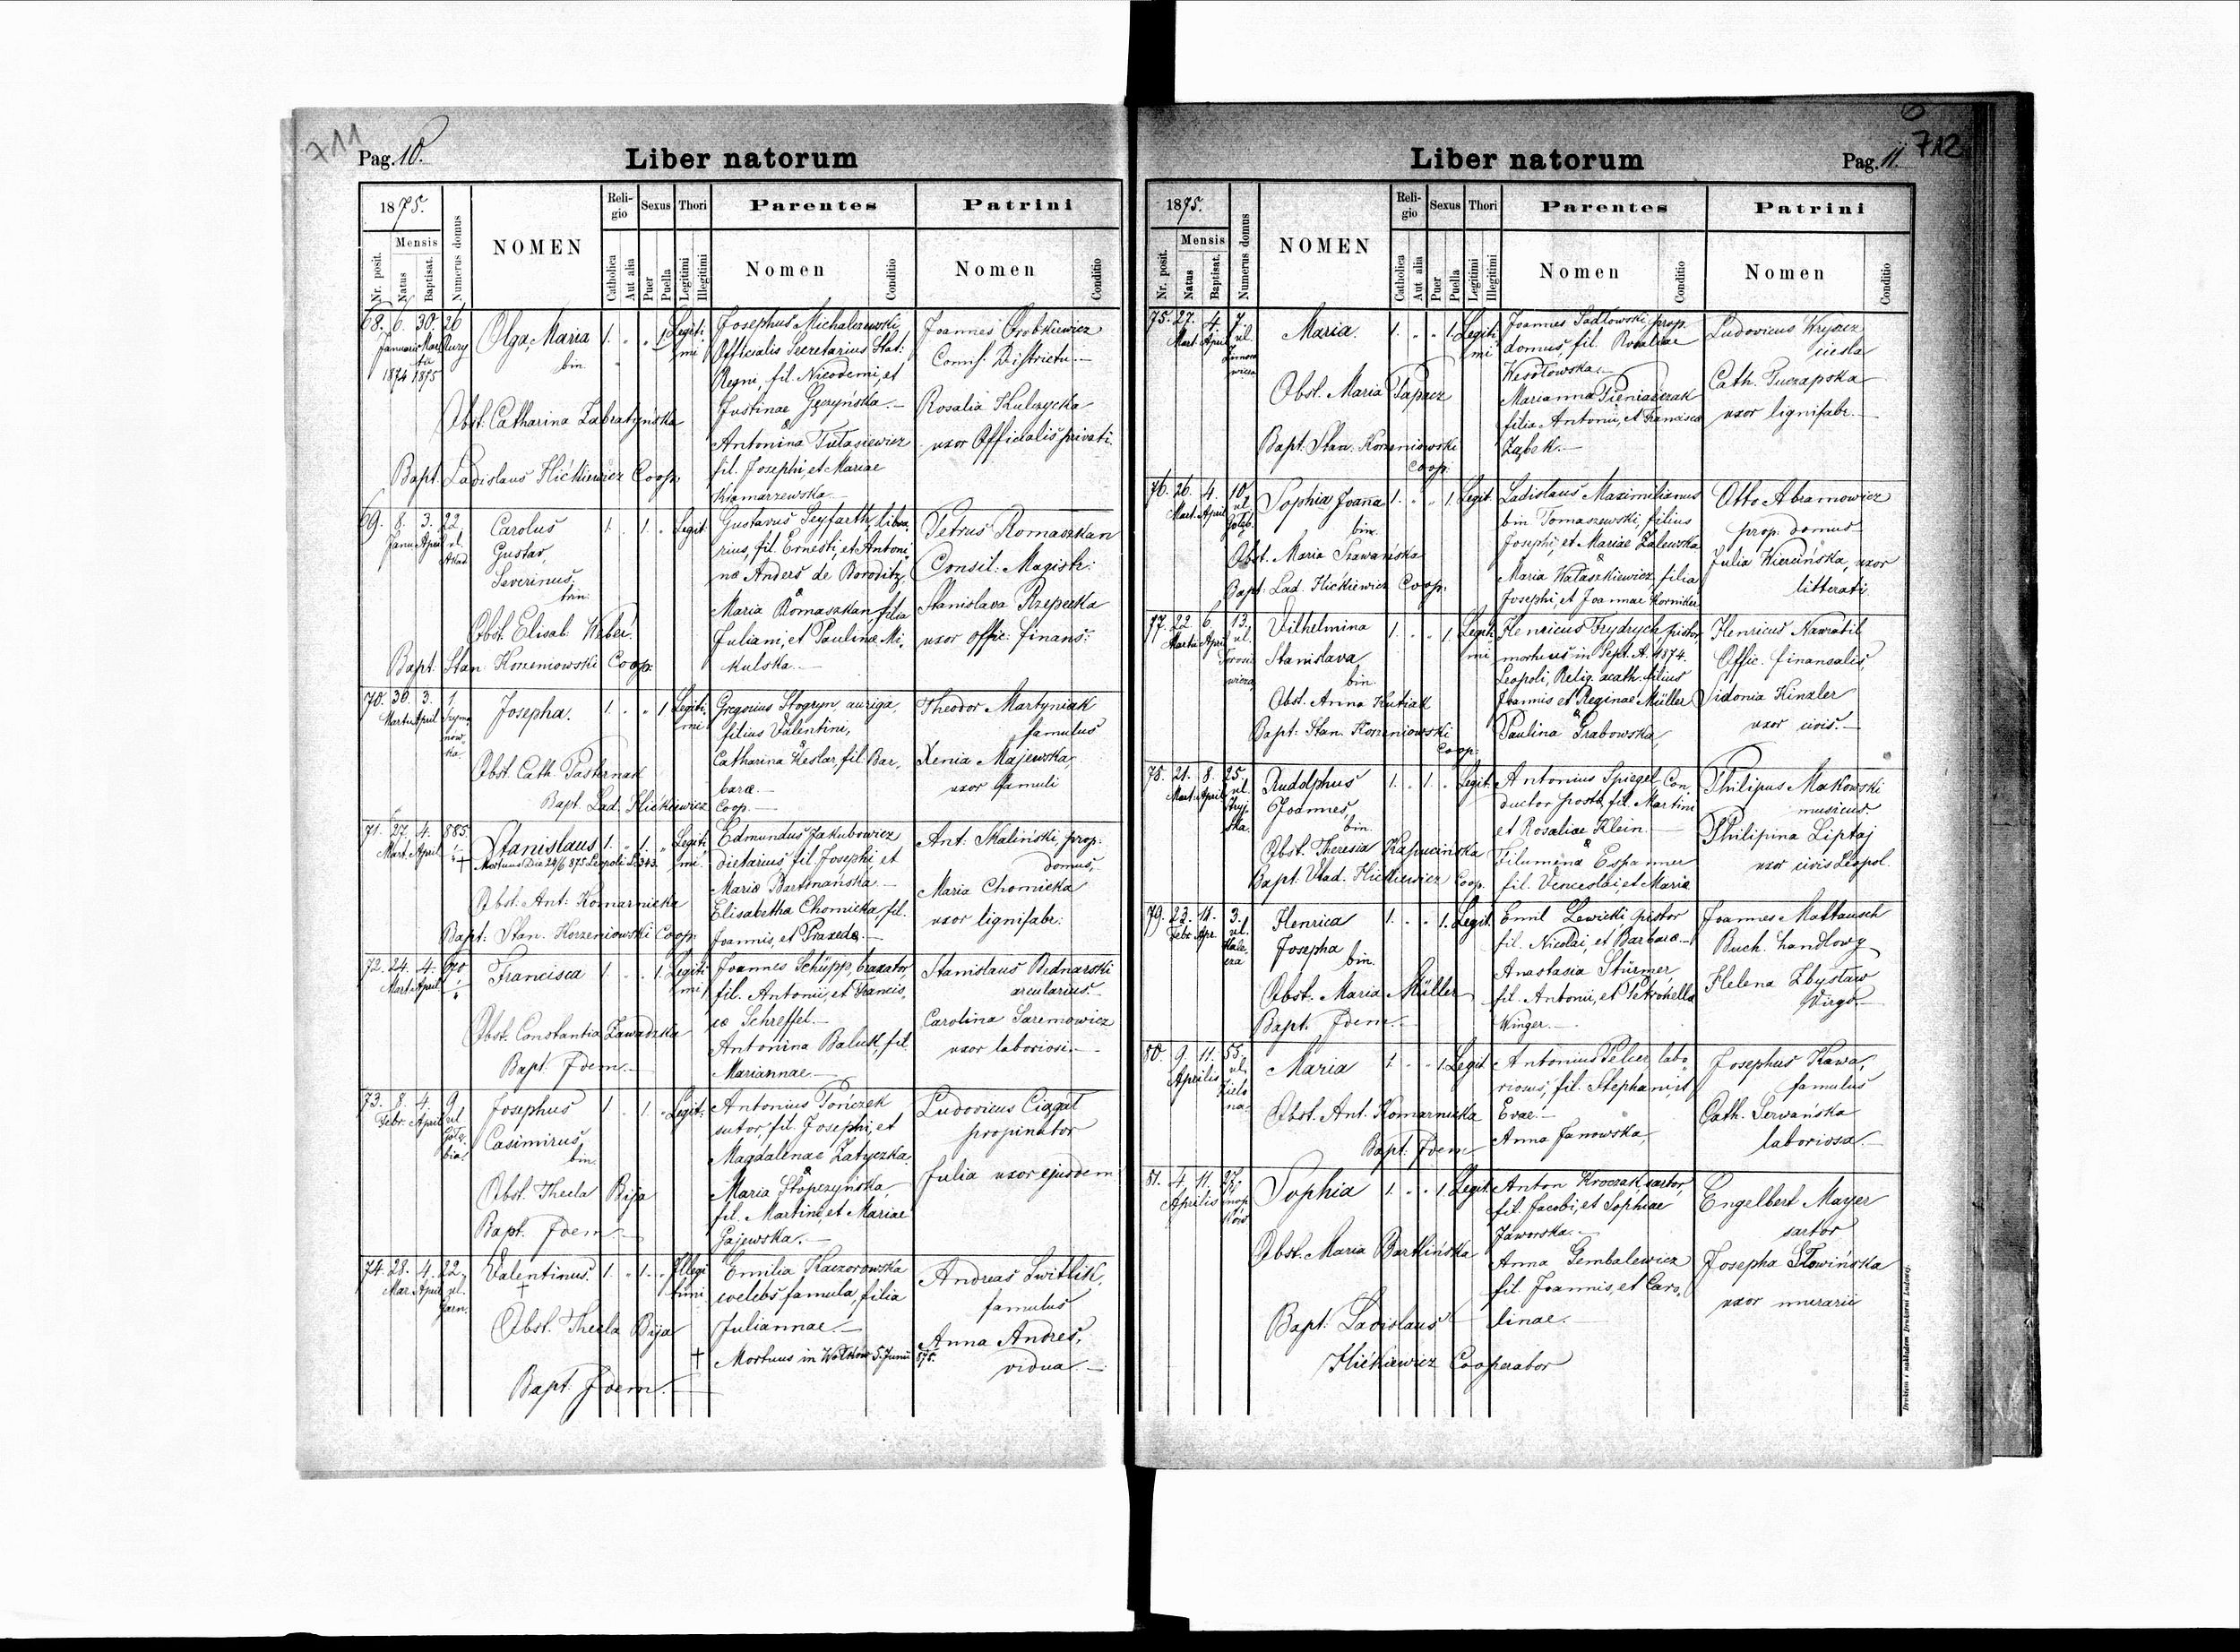 711
Pag. 10.
Liber natorum
1875.
Nr. posit.
Mensis
Natus
Baptisat.
Numerus domus
NOMEN
Religio
Catholica
Aut alia
Sexus
Puer
Puella
Thori
Legitimi
Illegitimi
Parentes
Nomen
Conditio
Patrini
Nomen
Conditio
68. 6. 30. 26
Januarii
1874 1875
Olga, Maria
bin.
1. " " 1 Legiti
mi
Obst. Catharina Zabratyńska
Bapt. Ladislaus Hićkiewicz Coop.
Josephus Michalczewski,
Officialis Secretarius Stat:
Regni, fil. Nicodemi, et
Justinae
&
Antonina Tułasiewicz
fil. Josephi, et Mariae
Kramarzewska.
Joannes
Districtu.
Rosalia Kulczycka
uxor Officialis privati.
69. 8. 3. 22
Janu. April ul.
Akad.
Carolus
Gustav,
Severinus,
trin.
1. " 1. " Legit.
Obst. Elisab. Weber.
Bapt. Stan. Korzeniowski Coop.
Gustavus Seyfarth, libra
rius, fil. Ernesti, et Antoni
nae Anders de Boroditz,
&
Maria Romaszkan, filia
Juliani, et Paulinae Mi,
kulska.
Petrus Romaszkan
Consil: Magistr:
Stanislava Rzepecka
uxor offic: finans:
70. 30. 3. 1
Martii April
Josepha.
1. " " 1 Legiti
mi
Obst. Cath. Pasternak
Bapt. Lad. Hićkiewicz Coop.
Gregorius Stogryn, auriga,
filius Valentini,
&
Catharina Keslar, fil. Bar,
barae.
Theodor Martyniak
famulus
Xenia Majewska,
uxor famuli
71. 27. 4. 885.
Mart. April
Stanislaus
1. " 1. " Legiti
mi.
Mortuus Die 24/6 875 Leopoli
Obst. Ant: Komarnicka
Bapt: Stan. Korzeniowski Coop.
Edmundus Jakubowicz
dietarius, fil. Josephi, et
Elisabetha Chomicka, fil.
Joannis, et Praxeda.
Ant: Skaliński, prop:
domus,
Maria Chomicka
uxor lignifabr.
72. 24. 4. 670
Mart. April
Francisca
1. " " 1. Legiti
mi
Obst. Constantia Zawadzka
Bapt. Idem.
Joannes Schüpp, braxator
fil. Antonii, et Francis,
cae Schreffel.
Antonina Baluk, fil.
Mariannae.
Stanislaus Bednarski
arcularius.
Carolina Saremowicz
uxor laboriosi.
73. 8. 4. 9
Febr. April ul
Josephus
Casimirus,
bin.
1. " 1. " Legit:
Obst. Thecla Bija
Bapt. Idem.
Antonius Pończek
sutor, fil. Josephi, et
Magdalenae Zatyczka.
&
Maria Słopczyńska,
fil. Martini, et Mariae
Gajewska.
Ludovicus Ciągał
propinator
Julia uxor ejusdem
74. 28. 4. 22.
Mar. April ul.
Valentinus.
†
1. " 1. " Illegi
timi
Obst. Thecla Bija
Bapt. Idem.
Emilia Kaczorowska
coelebs famula, filia
Juliannae.
† Mortuus in 5. Junii 875.
Andreas Switlik,
famulus
Anna Andres,
vidua.
712
Pag. 11.
Liber natorum
1875.
Nr. posit.
Mensis
Natus
Baptisat.
Numerus domus
NOMEN
Religio
Catholica
Aut alia
Sexus
Puer
Puella
Thori
Legitimi
Illegitimi
Parentes
Nomen
Conditio
Patrini
Nomen
Conditio
75. 27. 4. 7
Mart. April ul.
Maria.
1. " " 1. Legiti
mi
Obst. Maria Papacz
Bapt. Stan. Korzeniowski
Coop.
Joannes Sadłowski, prop.
domus, fil. Rosaliae
Wesołowska.
Marianna Pieniażczak
filia Antonii, et Francisca
Ząbek.
Ludovicus
Cath. Tuczapska
uxor lignifabr.
76. 26. 4. 10.
Mart. April ul.
Gołęb.
Sophia Joana
bin.
1. " " 1. Legit.
Obst. Maria
Bapt. Lad. Hićkiewicz Coop.
Ladislaus Maximilianus
bin Tomaszewski, filius
Josephi, et Mariae Zalewska
&
Maria Wałaszkiewicz, filia
Josephi, et Joannae Korniker
Otto Abramowicz
prop. domus
Julia Wiercińska, uxor
litterati
77. 22 6. 13.
Martii April ul.
Vilhelmina
Stanislava
bin.
1. " " 1. Legiti
mi
Obst. Anna Kutiak
Bapt: Stan. Korzeniowski
Coop:
Henricus Frydrych, pistor,
mortuus in Sept. A. 1874.
Leopoli, Relig. acath. filius
Joannis et Reginae Müller
&
Paulina Grabowska,
Henricus Nawratil
Offic. finansalis,
Sidonia Kinzler
uxor civis.
78. 21. 8. 25.
Mart. April ul.
Stryj
ska.
Rudolphus
Joannes,
bin.
1. " 1. " Legit.
Obst. Theresia Kapucińska
Bapt. Vlad. Hićkiewicz Coop.
Antonius Spiegel, Con,
ductor posta, fil. Martini
et Rosaliae Klein.
&
Filumena Espanner
fil. Venceslai, et Maria
Philipus Makowski
musicus.
Philipina Liptaj
uxor civis Leopol.
79. 23. 11. 3.
Febr. Apr. ul.
Henrica
Josepha
bin.
1. " " 1. Legit.
Obst. Maria Müller
Bapt. Idem.
Emil Lewicki, pistor
fil. Nicolai, et Barbara.
Anastasia Stürmer,
fil. Antonii, et Petronella
Winger.
Joannes Mattausch
Buch. handlowy
Helena Zbysław
Virgo.
80. 9. 11. 55.
Aprilis ul.
Zielo
na.
Maria
1. " " 1. Legit
Obst. Ant. Komarnicka
Bapt. Idem
Antonius Pelier, labo
riosus, fil. Stephani, et
Evae.
Anna Janowska,
Josephus Kawa,
famulus
Cath. Serwańska
laboriosa.
81. 4. 11. 27.
Aprilis
Sophia
1. " " 1. Legit.
Obst. Maria Bartlińska
Bapt: Ladislaus
Hićkiewicz Cooperator
Anton Kroczak sartor,
fil. Jacobi, et Sophiae
Jaworska.
Anna Gembalewicz
fil. Joannis, et Caro,
linae.
Engelbert Mayer
sartor
Josepha Słowińska
uxor murarii
Drukiem i nakładem Drukarni Ludowej.